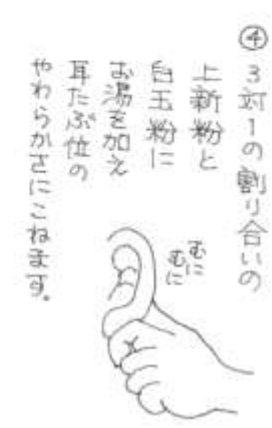 ④3対1の割り合いの
上新粉と
白玉粉に
お湯を加え
耳たぶ位の
やわらかさにこねます。
むに
むに